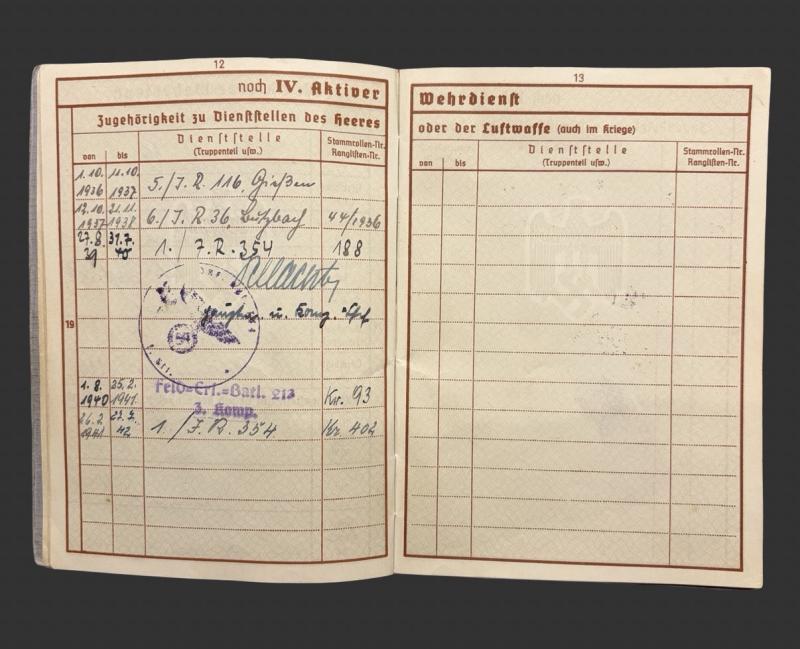 12
noch IV. Aktiver
Zugehörigkeit zu Dienststellen des Heeres
von bis Dienststelle (Truppenteil usw.) Stammrollen-Nr. Ranglisten-Nr.
1.10. 1936 11.10. 1937 5./J.R. 116, Gießen
12.10. 1937 21.11. 1938 6./J.R. 36, Butzbach 44/1936
27.8. 39 31.7. 40 1./J.R. 354 188
u. Komp.
19
1.8. 1940 25.2. 1941. Feld=Ers.=Batl. 213 3. Komp. Kr. 93
26.2. 1941 42 1./J.R. 354 Kr. 402
13
Wehrdienst
oder der Luftwaffe (auch im Kriege)
von bis Dienststelle (Truppenteil usw.) Stammrollen-Nr. Ranglisten-Nr.